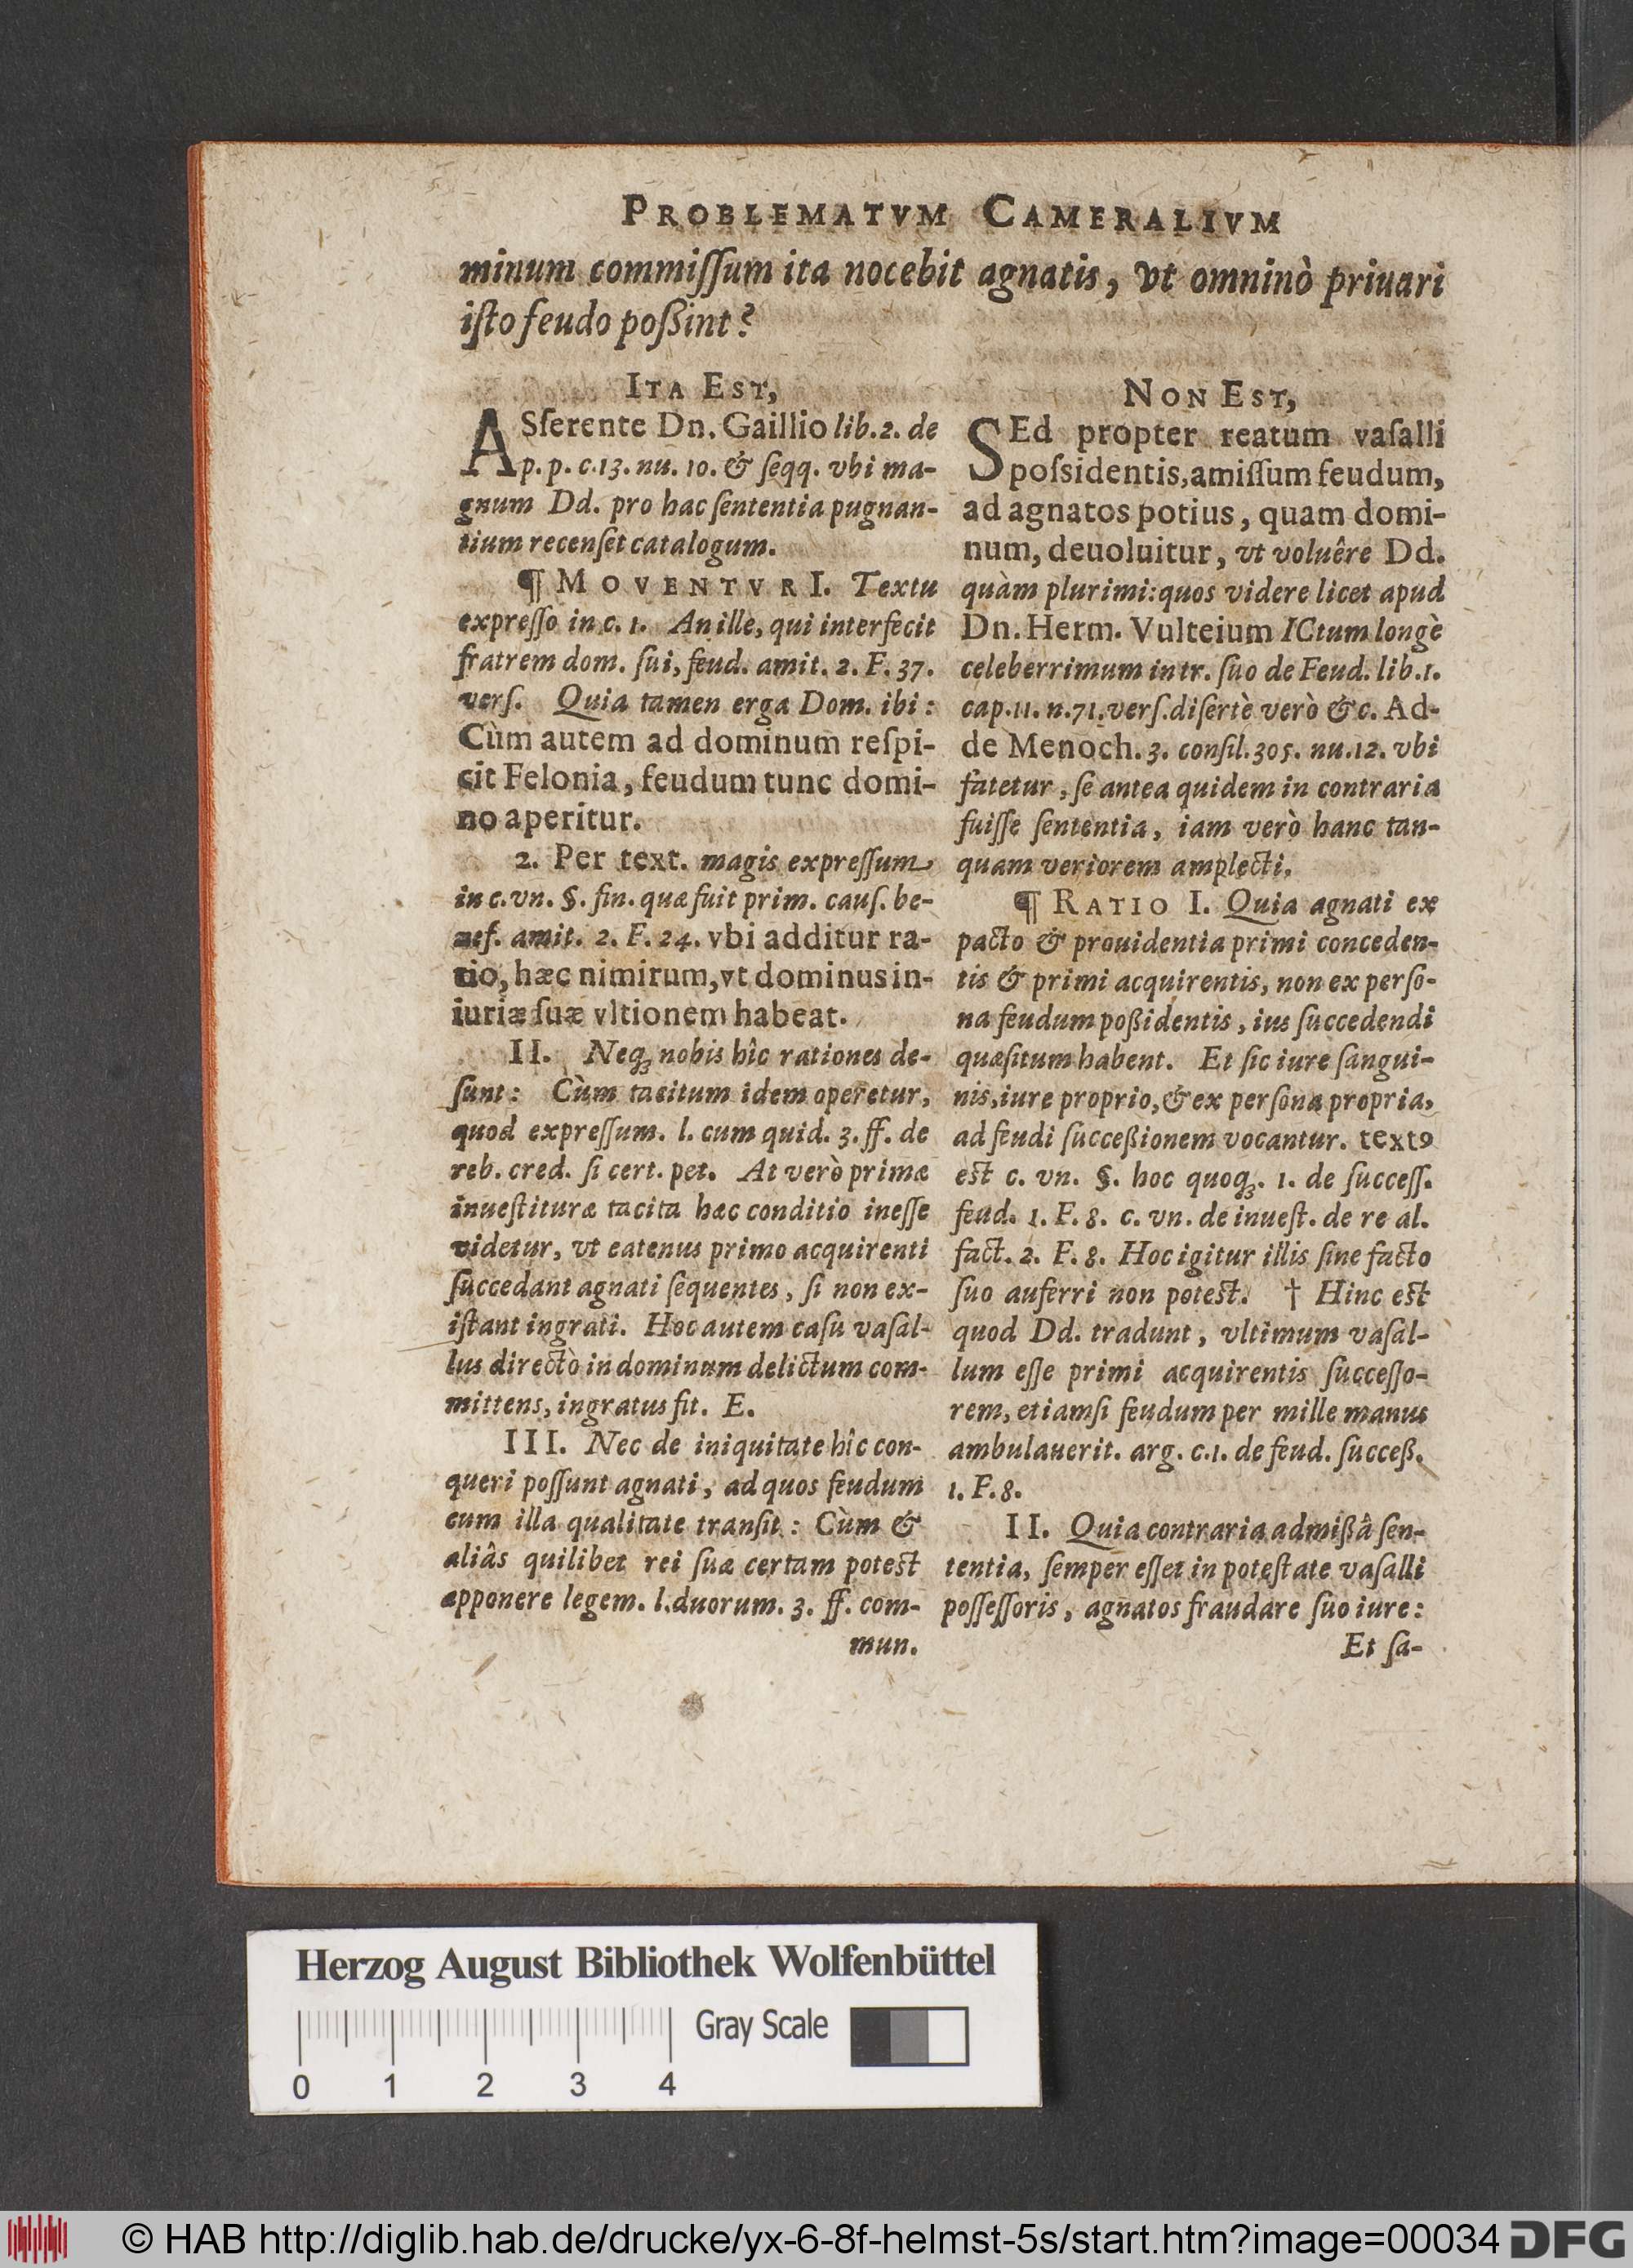 PROBLEMATVM CAMERALIVM
minum commiſſum ita nocebit agnatis, vt omninò priuari
iſto feudo poßint?
ITA EST,
ASſerente Dn. Gaillio lib. 2. de
p. p. c. 13. nu. 10. & ſeqq. vbi ma-
gnum Dd. pro hac ſententia pugnan-
tium recenſet catalogum.
¶ MOVENTVR I. Textu
expreſſo in c. 1. An ille, qui interfecit
fratrem dom. ſui, feud. amit. 2. F. 37.
verſ. Quia tamen erga Dom. ibi:
Cùm autem ad dominum reſpi-
cit Felonia, feudum tunc domi-
no aperitur.
2. Per text. magis expreſſum
in c. vn. §. fin. quæ fuit prim. cauſ. be-
nef. amit. 2. F. 24. vbi additur ra-
tio, hæc nimirum, vt dominus in-
iuriæ ſuæ vltionem habeat.
II. Neqꝫ nobis hîc rationes de-
ſunt: Cùm tacitum idem operetur,
quod expreſſum. l. cum quid. 3. ff. de
reb. cred. ſi cert. pet. At verò primæ
inueſtituræ tacita hæc conditio ineſſe
videtur, vt eatenus primo acquirenti
ſuccedant agnati ſequentes, ſi non ex-
iſtant ingrati. Hoc autem caſu vaſal-
lus directò in dominum delictum com-
mittens, ingratus fit. E.
III. Nec de iniquitate hîc con-
queri poſſunt agnati, ad quos feudum
cum illa qualitate tranſit: Cùm &
aliâs quilibet rei ſuæ certam poteſt
apponere legem. l. duorum. 3. ff. com-
mun.
NON EST,
SEd propter reatum vaſalli
poſsidentis, amiſſum feudum,
ad agnatos potius, quam domi-
num, deuoluitur, vt voluêre Dd.
quàm plurimi: quos videre licet apud
Dn. Herm. Vulteium ICtum longè
celeberrimum in tr. ſuo de Feud. lib. 1.
cap. 11. n. 71. verſ. diſertè verò &c. Ad-
de Menoch. 3. conſil. 305. nu. 12. vbi
fatetur, ſe antea quidem in contraria
fuiſſe ſententia, iam verò hanc tan-
quam veriorem amplecti.
¶ RATIO I. Quia agnati ex
pacto & prouidentia primi conceden-
tis & primi acquirentis, non ex perſo-
na feudum poßidentis, ius ſuccedendi
quæſitum habent. Et ſic iure ſangui-
nis, iure proprio, & ex perſona propria,
ad feudi ſucceßionem vocantur. textꝰ
eſt c. vn. §. hoc quoqꝫ. 1. de ſucceſſ.
feud. 1. F. 8. c. vn. de inueſt. de re al.
fact. 2. F. 8. Hoc igitur illis ſine facto
ſuo auferri non poteſt. † Hinc eſt
quod Dd. tradunt, vltimum vaſal-
lum eſſe primi acquirentis ſucceſſo-
rem, etiamſi feudum per mille manus
ambulauerit. arg. c. 1. de feud. ſucceß.
1. F. 8.
II. Quia contraria admißâ ſen-
tentia, ſemper eſſet in poteſtate vaſalli
poſſeſſoris, agnatos fraudare ſuo iure:
Et ſa-
Herzog August Bibliothek Wolfenbüttel
Gray Scale
0 1 2 3 4
© HAB http://diglib.hab.de/drucke/yx-6-8f-helmst-5s/start.htm?image=00034 DFG